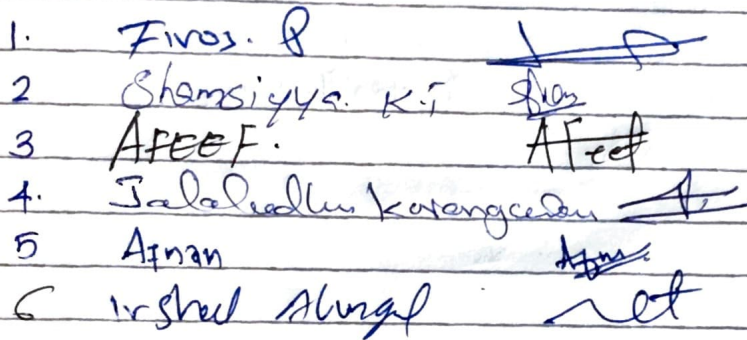 1. Firos. P
2 Shamsiyya. K.i
3 AFEEF. AFeef
4. Jalaludhin
5 Afnan Afnan
6 Irshad Alungal